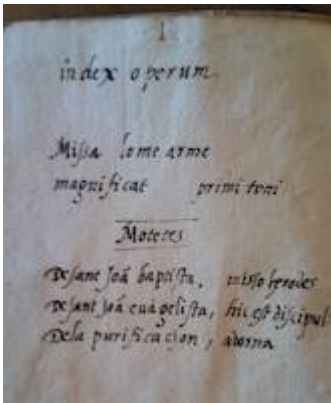 1
index operum.
Missa lome arme
magnificat primi toni
Motetes
De sant Joā baptista, misso herodes
De sant Joā euāgelista, hic est discipul
Dela purificacion, adorna